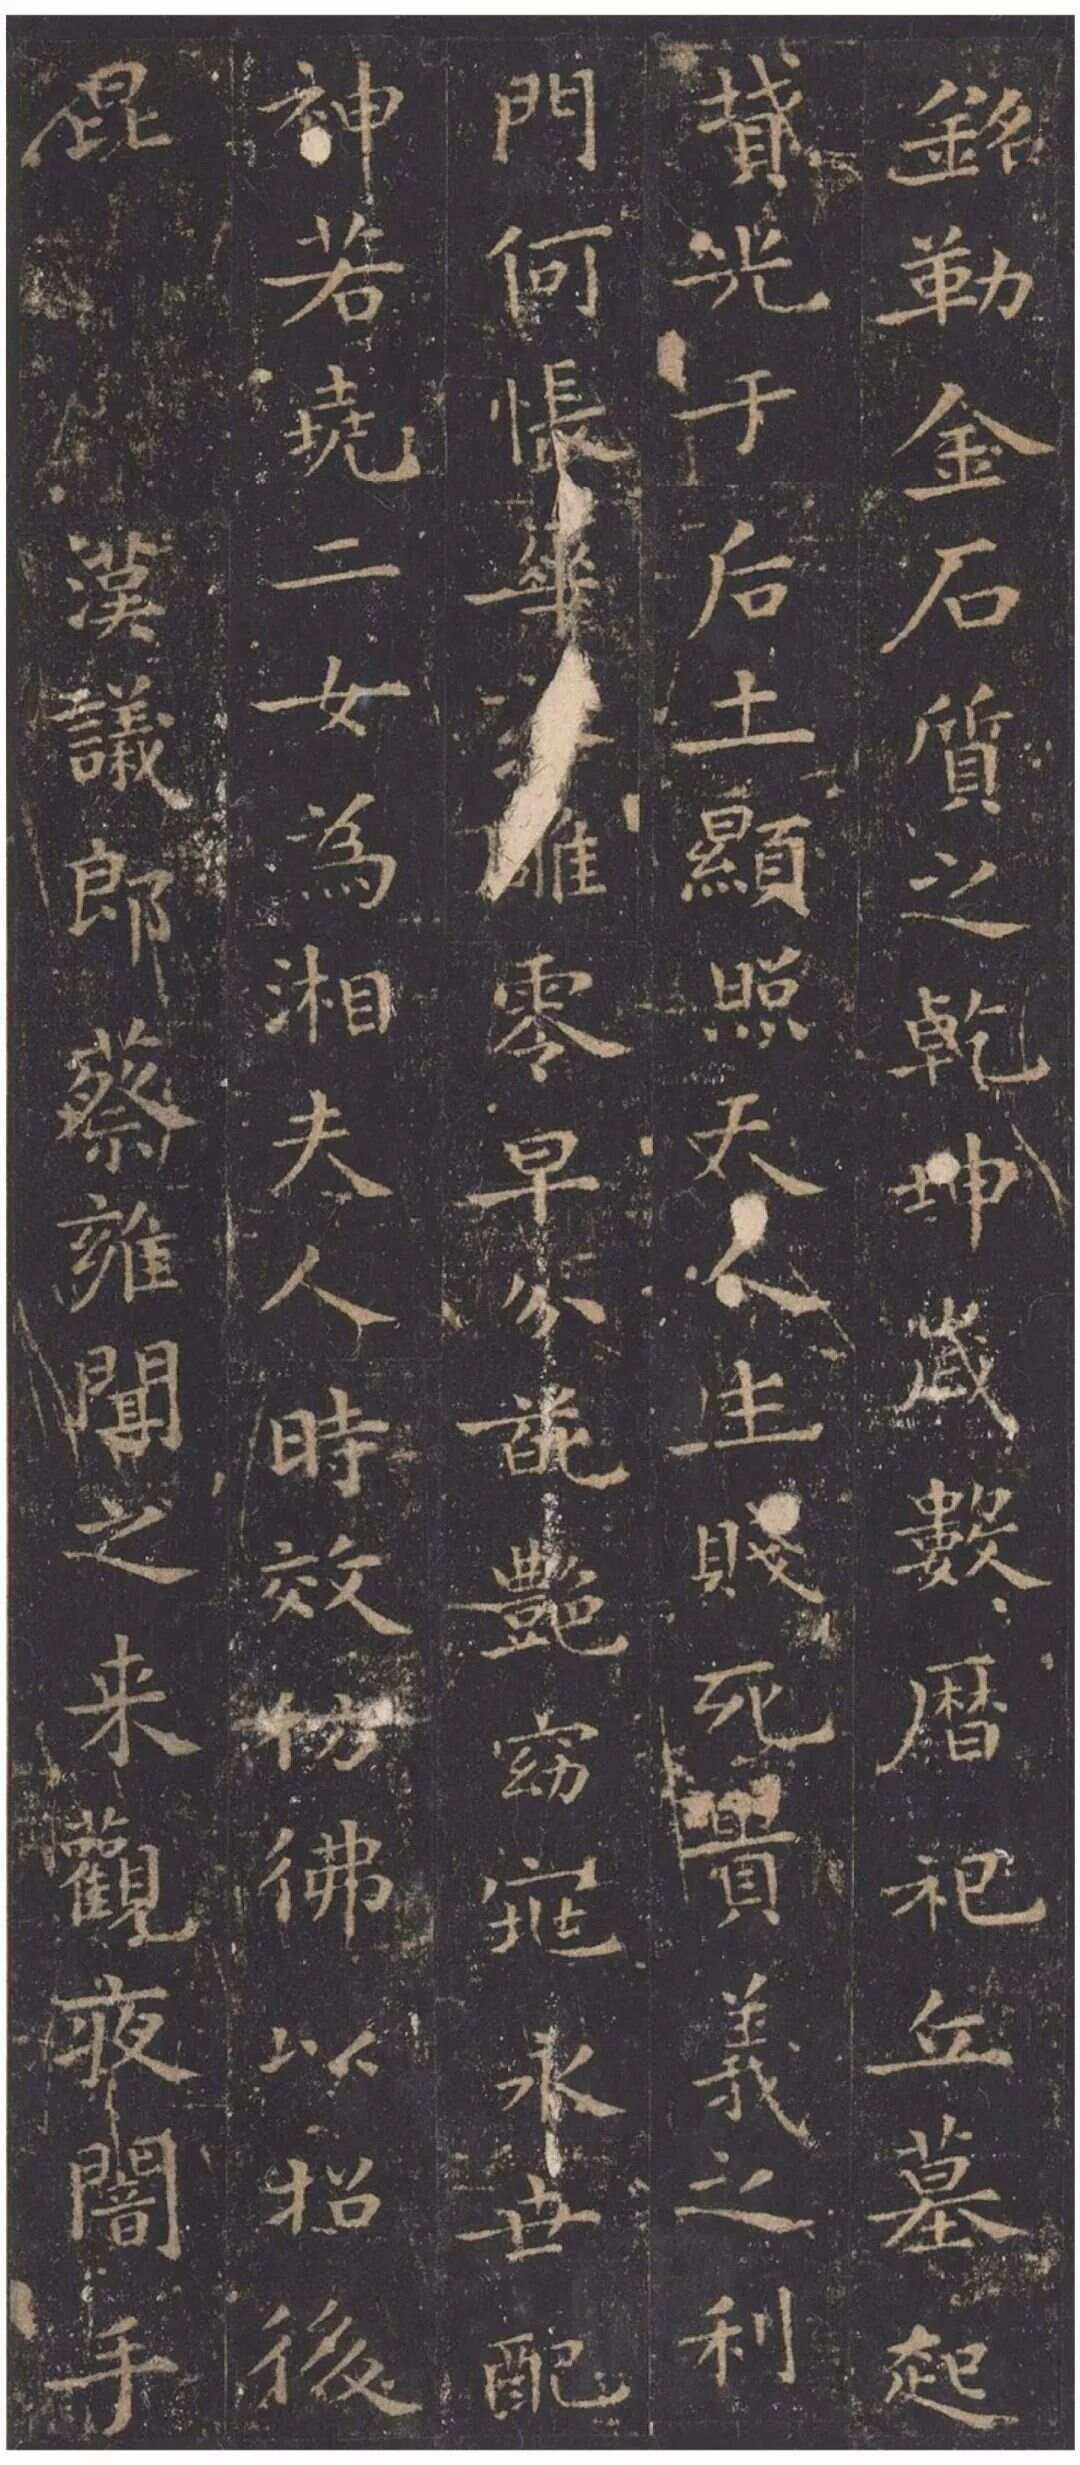 銘勒金石質之乾坤歲數曆祀丘墓起
墳光于后土顯照天人生賤死貴義之利
門何悵華雕零早分葩艷窈窕永世配
神若堯二女為湘夫人時效彷彿以招後
昆漢議郎蔡雍聞之来觀夜闇手